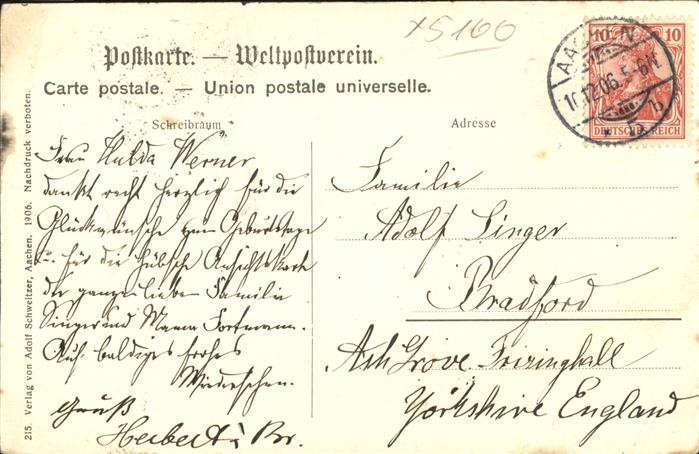 x5100
Postkarte. — Weltpostverein.
Carte postale. — Union postale universelle.
Schreibraum
Frau Hulda Werner
dankt recht herzlich für die
Glückwünsche zum Geburtstage
u. für die hübsche Ansichtskarte
der ganzen lieben Familie
Singer und Mama Fortmann.
Auf baldiges frohes
Wiedersehen.
Gruß
Herbert
Adresse
Familie
Adolf Singer
Bradford
Ash Grove Frizinghall
Yorkshire England
10 10
DEUTSCHES REICH
AACHEN
10.12.06. 5-6N
215. Verlag von Adolf Schweitzer, Aachen. 1906. Nachdruck verboten.